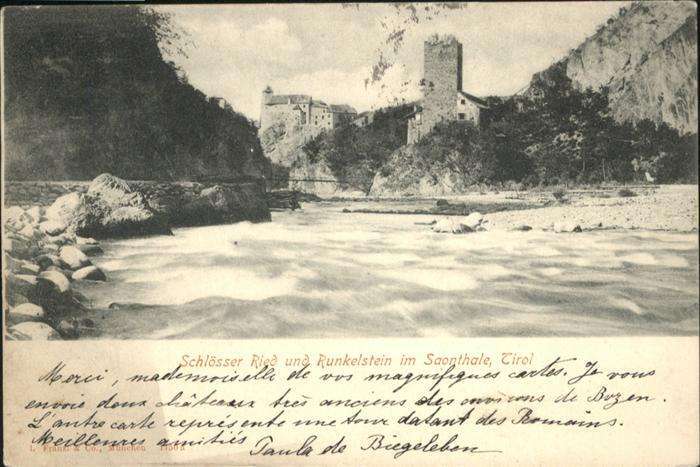 Schlösser Ried und Runkelstein im Saonthale, Tirol
Merci, mademoiselle de vos magnifiques cartes. Je vous
envoie deux châteaux très anciens des environs de Bozen.
L'autre carte représente une tour datant des Romains.
Meilleures amitiés
Paula de Biegeleben
L. Fränkl & Co., München